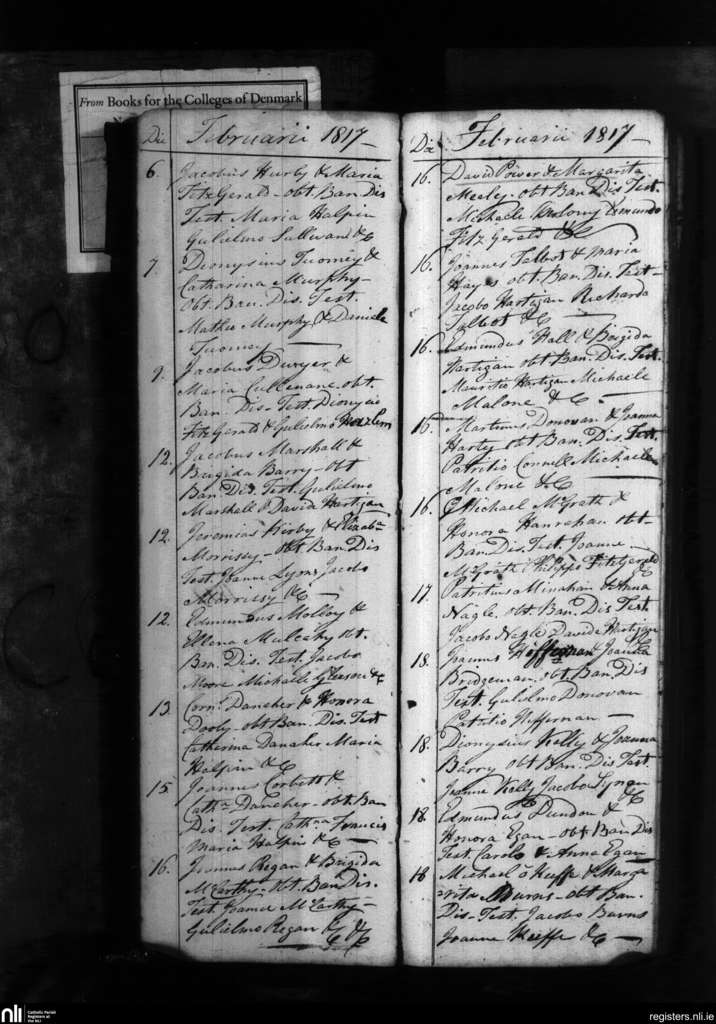 From Books for the Colleges of Denmark
Die Februarii 1817
6. Jacobus Hurly & Maria
FitzGerald - obt. Ban. Dis
Test. Maria Halpin
Gulielmo Sullivan &c
7. Dionysius Tuomey &
Catharina Murphy
obt. Ban. Dis. Test.
Matheo Murphy & Daniele
Tuomey
9. Jacobus Dwyer &
Maria Cullenane obt.
Ban. Dis. Test. Dionysio
FitzGerald & Gulielmo
12. Jacobus Marshall &
Brigida Barry - obt
Ban. Dis. Test. Gulielmo
Marshall & David Hartigan
12. Jeremias Kirby & Elizabth
Morrissy - obt. Ban. Dis
Test. Joanne Lyns Jacobo
Morrissy &c
12. Edmundus Molloy &
Ellena Mulcahy obt.
Ban. Dis. Test. Jacobo
Moore Michaele Gleeson &c
13. Corns. Danaher & Honora
Dooly - obt Ban. Dis. Test
Catherina Danaher Maria
Halpin &c
15. Joannes Corbett &
Cathna Danaher - obt. Ban
Dis. Test. Cathna Francis
Maria Halpin &c
16. Joannes Regan & Brigida
McCarthy. obt. Ban Dis.
Test. Joanne McCarthy
Gulielmo Regan & &c
Die Februarii 1817
16. David Power & Margarita
Meely. obt Ban. Dis Test.
Michaele Edmundo
Fitz Gerald &c
16. Joannes Talbot & Maria
Hayes obt. Ban. Dis. Test
Jacobo Hartigan Richardo
Talbot &c
16. Edmundus Hall & Brigida
Hartigan obt Ban. Dis. Test.
Mauritio Hartigan Michaele
Malone &c
16. Martinus Donovan & Joanna
Harty obt Ban. Dis. Test.
Patritio Connell Michaele
Malone &c
16. Michael McGrath &
Honora Hanrahan obt
Ban. Dis. Test. Joanne
McGrath Philippo FitzGerald
&c
17. Patritius Minahan & Anna
Nagle. obt. Ban. Dis Test.
Jacobo Nagle Davide Hartigan
&c
18. Joannes Heffernan & Joanna
Bridgeman. obt. Ban. Dis
Test. Gulielmo Donovan
Patritio Heffernan
18. Dionysius Kelly & Joanna
Barry obt Ban. Dis Test.
Joanne Kelly Jacobo
&c
18. Edmundus Dundon &
Honora Egan - obt Ban Dis
Test. Carolo & Anna Egan
18 Michael O Keeffe & Marga
=rita Burns - obt Ban.
Dis. Test. Jacobo Burns
Joanne Keeffe &c
nli
Catholic Parish
Registers at
the NLI
registers.nli.ie